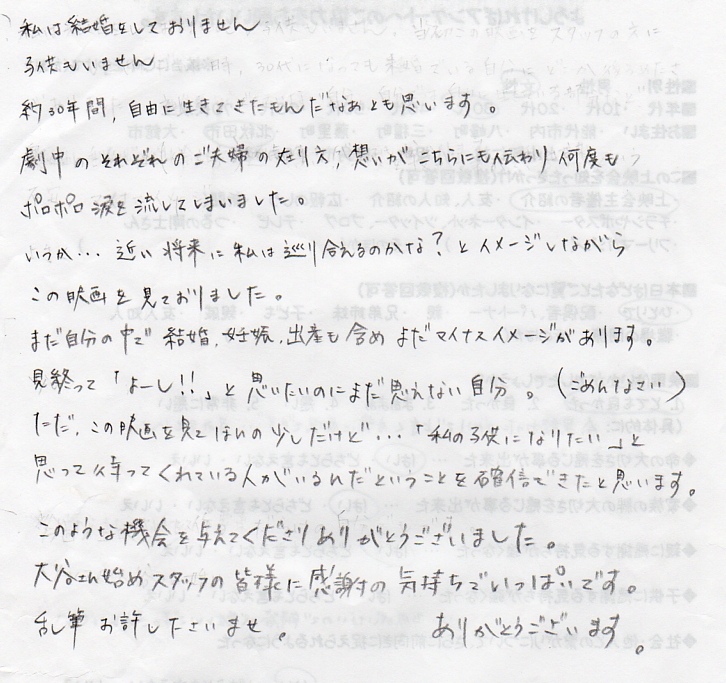 私は結婚をしておりません
子供もいません
約30年間，自由に生きてきたもんだなあとも思います。
劇中のそれぞれのご夫婦の在り方，想いがこちらにも伝わり何度も
ポロポロ涙を流してしまいました。
いつか… 近い将来に私は巡り合えるのかな？とイメージしながら
この映画を見ておりました。
まだ自分の中で結婚，妊娠，出産も含めまだマイナスイメージがあります。
見終って「よーし！！」と思いたいのにまだ思えない自分。（ごめんなさい）
ただ，この映画を見てほんの少しだけど…「私の子供になりたい」と
思って待ってくれている人がいるんだということを確信できたと思います。
このような機会を与えてくださりありがとうございました。
大谷さん始めスタッフの皆様に感謝の気持ちでいっぱいです。
乱筆お許しくださいませ。 ありがとうございます。